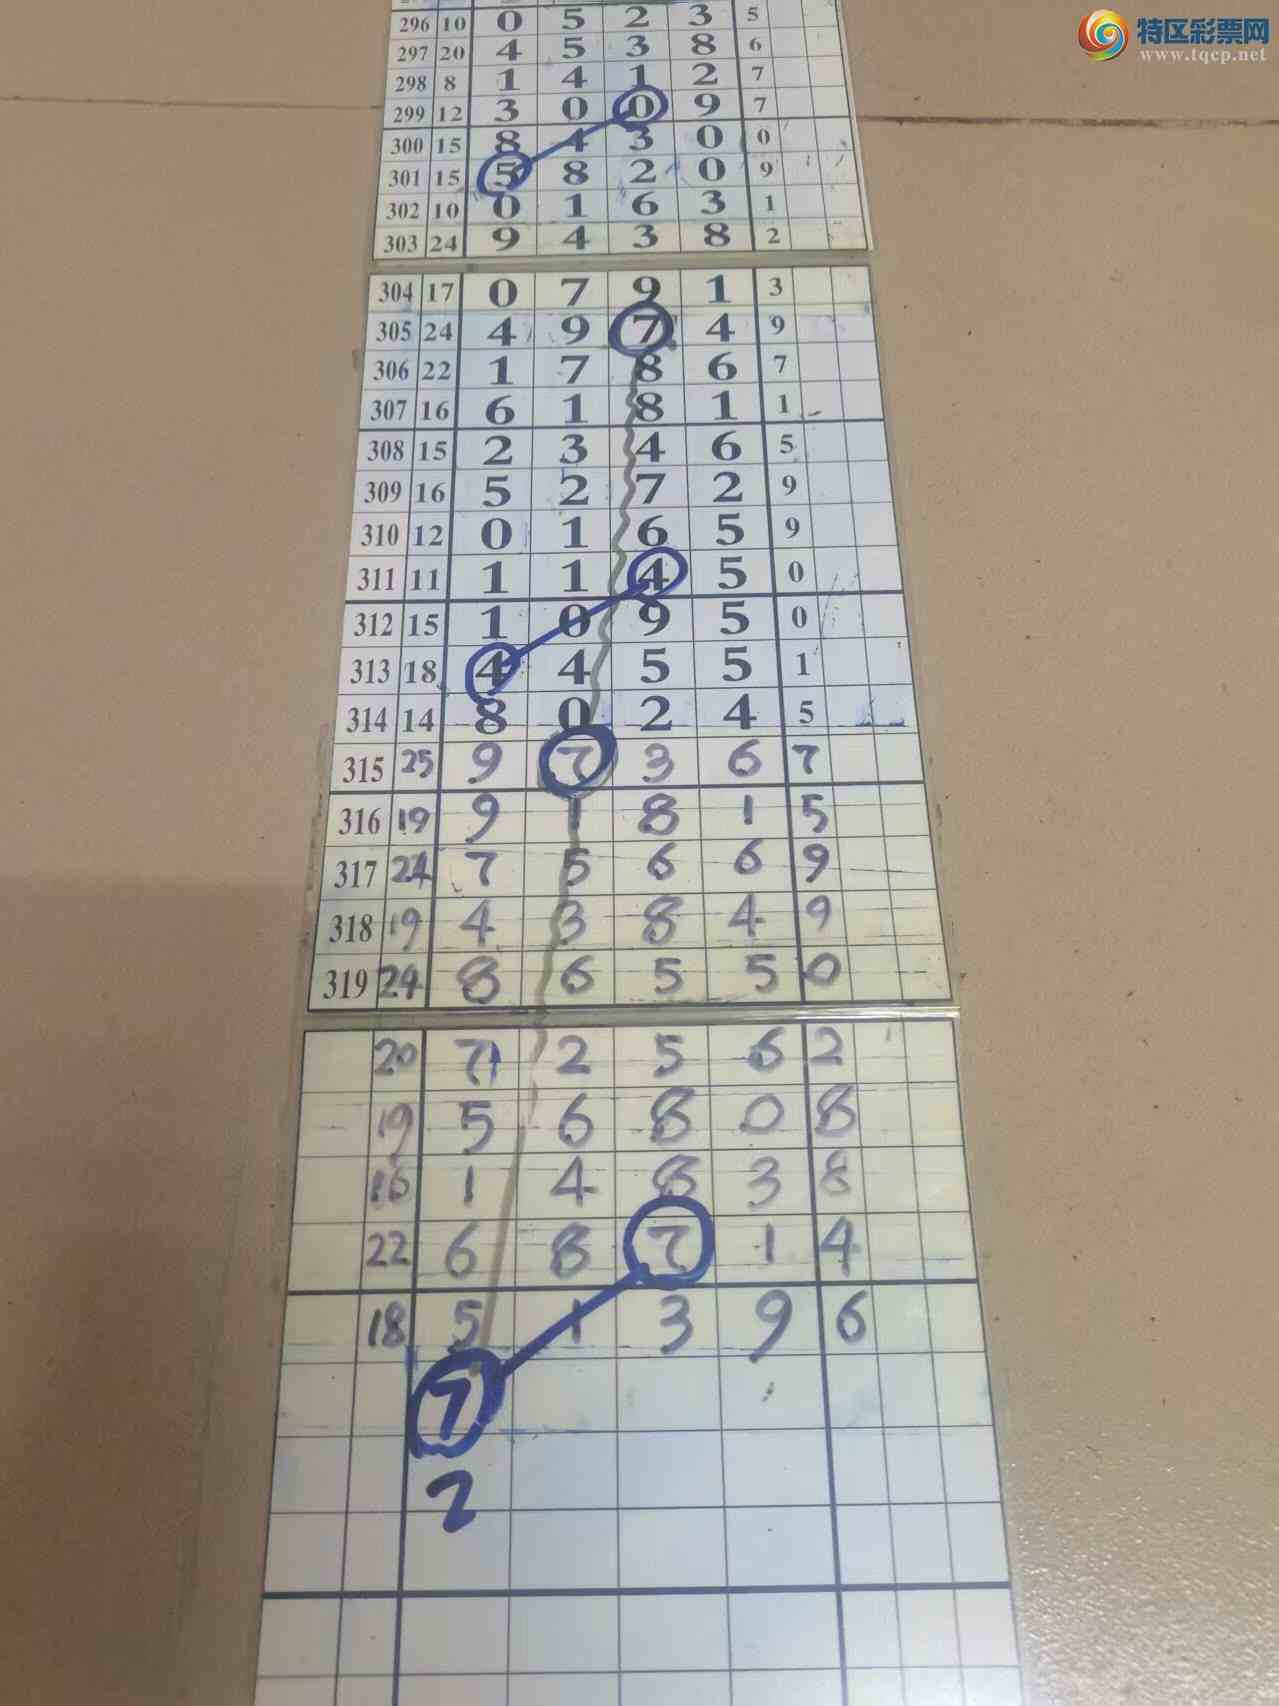 特区彩票网
www.tqcp.net
296 10 0 5 2 3 5
297 20 4 5 3 8 6
298 8 1 4 1 2 7
299 12 3 0 0 9 7
300 15 8 4 3 0 0
301 15 5 8 2 0 9
302 10 0 1 6 3 1
303 24 9 4 3 8 2
304 17 0 7 9 1 3
305 24 4 9 7 4 9
306 22 1 7 8 6 7
307 16 6 1 8 1 1
308 15 2 3 4 6 5
309 16 5 2 7 2 9
310 12 0 1 6 5 9
311 11 1 1 4 5 0
312 15 1 0 9 5 0
313 18 4 4 5 5 1
314 14 8 0 2 4 5
315 25 9 7 3 6 7
316 19 9 1 8 1 5
317 24 7 5 6 6 9
318 19 4 3 8 4 9
319 24 8 6 5 5 0
20 7 2 5 6 2
19 5 6 8 0 8
16 1 4 8 3 8
22 6 8 7 1 4
18 5 1 3 9 6
7
2